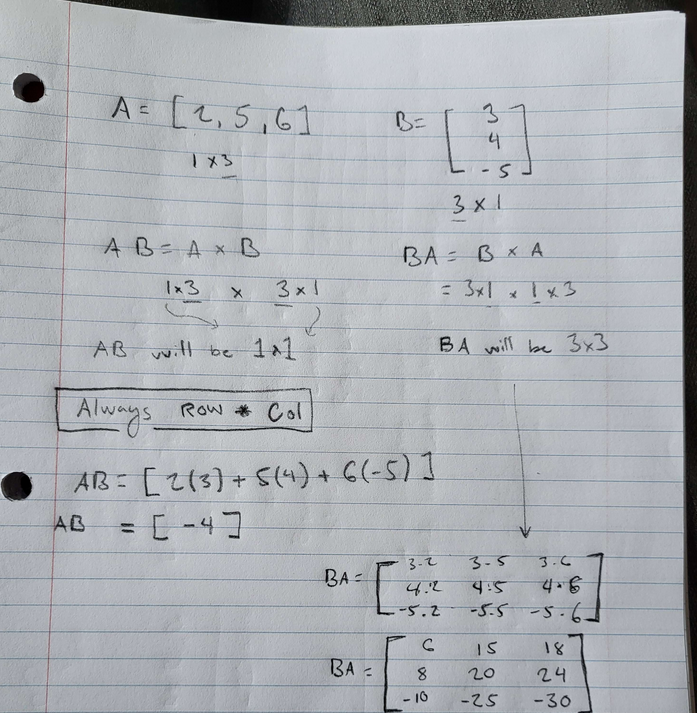 A = [2, 5, 6]
1 x 3
B = [ 3
4
-5 ]
3 x 1
AB = A x B
1x3 x 3x1
AB will be 1x1
BA = B x A
= 3x1 x 1x3
BA will be 3x3
Always Row * Col
AB = [2(3) + 5(4) + 6(-5)]
AB = [-4]
BA = [ 3·2 3·5 3·6
4·2 4·5 4·6
-5·2 -5·5 -5·6 ]
BA = [ 6 15 18
8 20 24
-10 -25 -30 ]